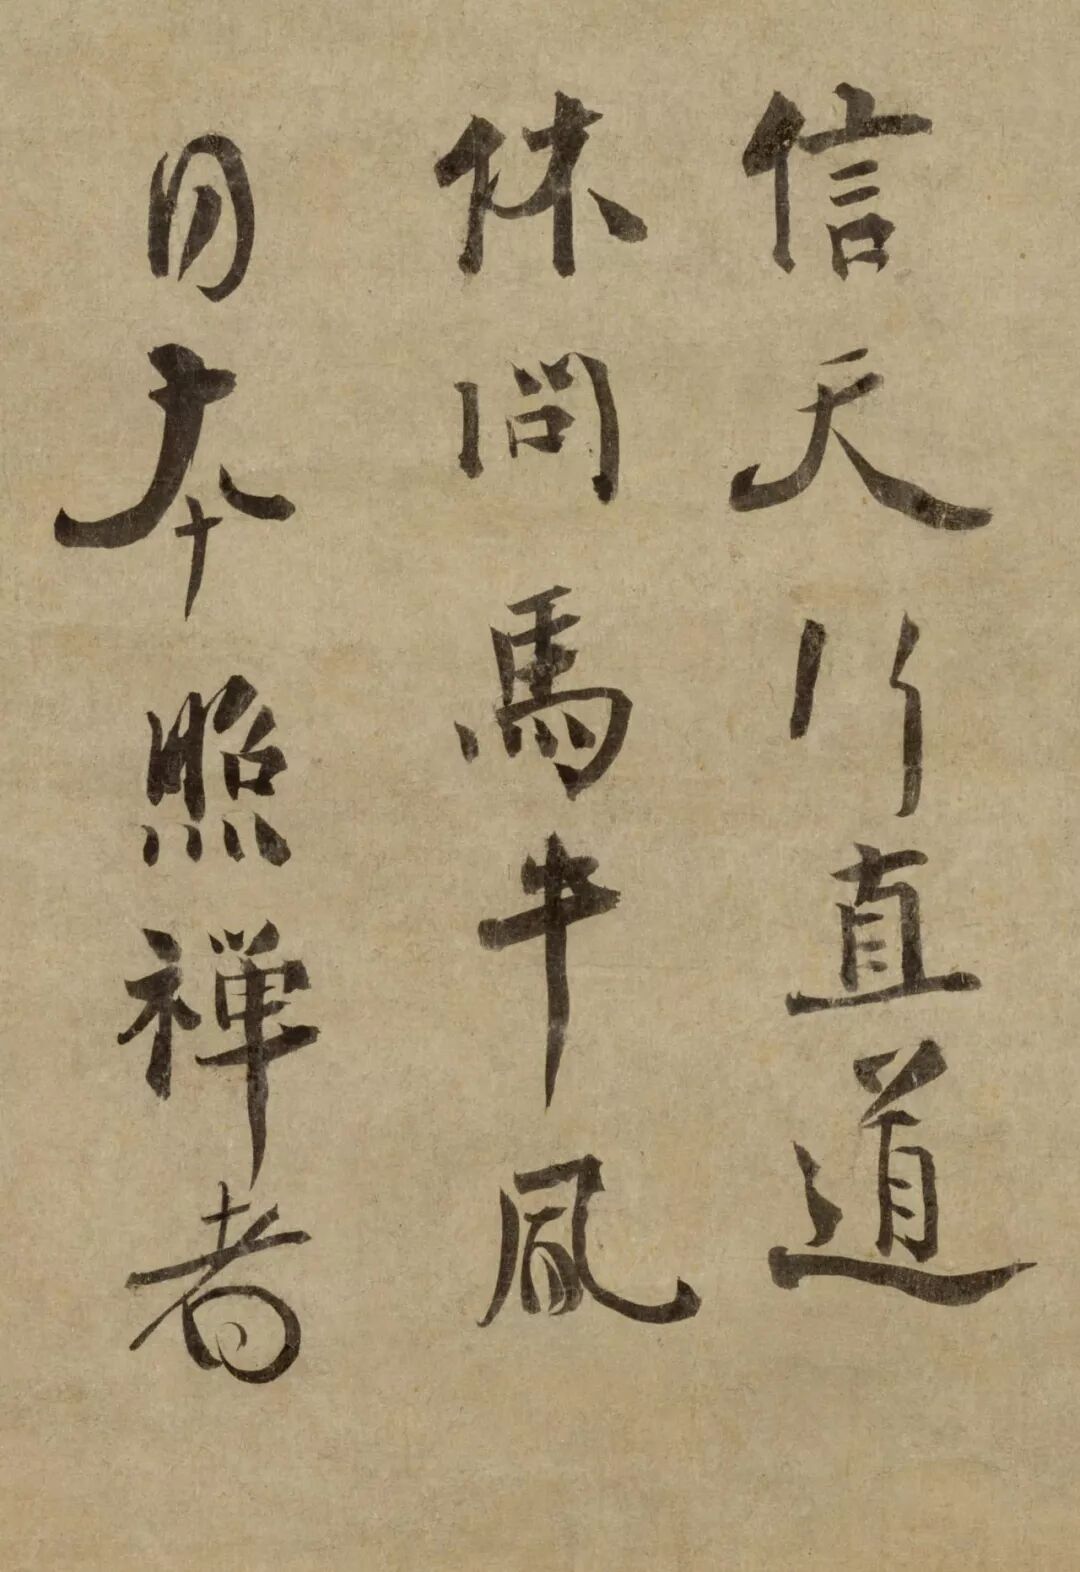 信天行直道
休問馬牛風
日本照禪者